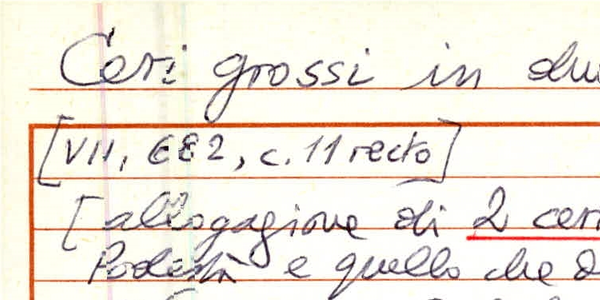 Ceri grossi in due
[VII, 682, c. 11 recto]
[allogagione di 2 ceri
Podestà e quello che